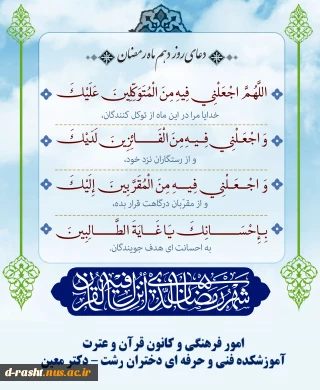 دعای روز دهم ماه رمضان
اللَّهُمَّ اجْعَلْنِي فِيهِ مِنَ الْمُتَوَكِّلِينَ عَلَيْكَ
خدایا مرا در این ماه از توکل کنندگان،
وَ اجْعَلْنِي فِيهِ مِنَ الْفَائِزِينَ لَدَيْكَ
و از رستگاران نزد خود،
وَ اجْعَلْنِي فِيهِ مِنَ الْمُقَرَّبِينَ إِلَيْكَ
و از مقرّبان درگاهت قرار بده،
بِإِحْسَانِكَ يَا غَايَةَ الطَّالِبِينَ
به احسانت ای هدف جویندگان.
شهر رمضان الذی انزل فیه القرآن
امور فرهنگی و کانون قرآن و عترت
آموزشکده فنی و حرفه ای دختران رشت - دکتر معین
d-rasht.nus.ac.ir